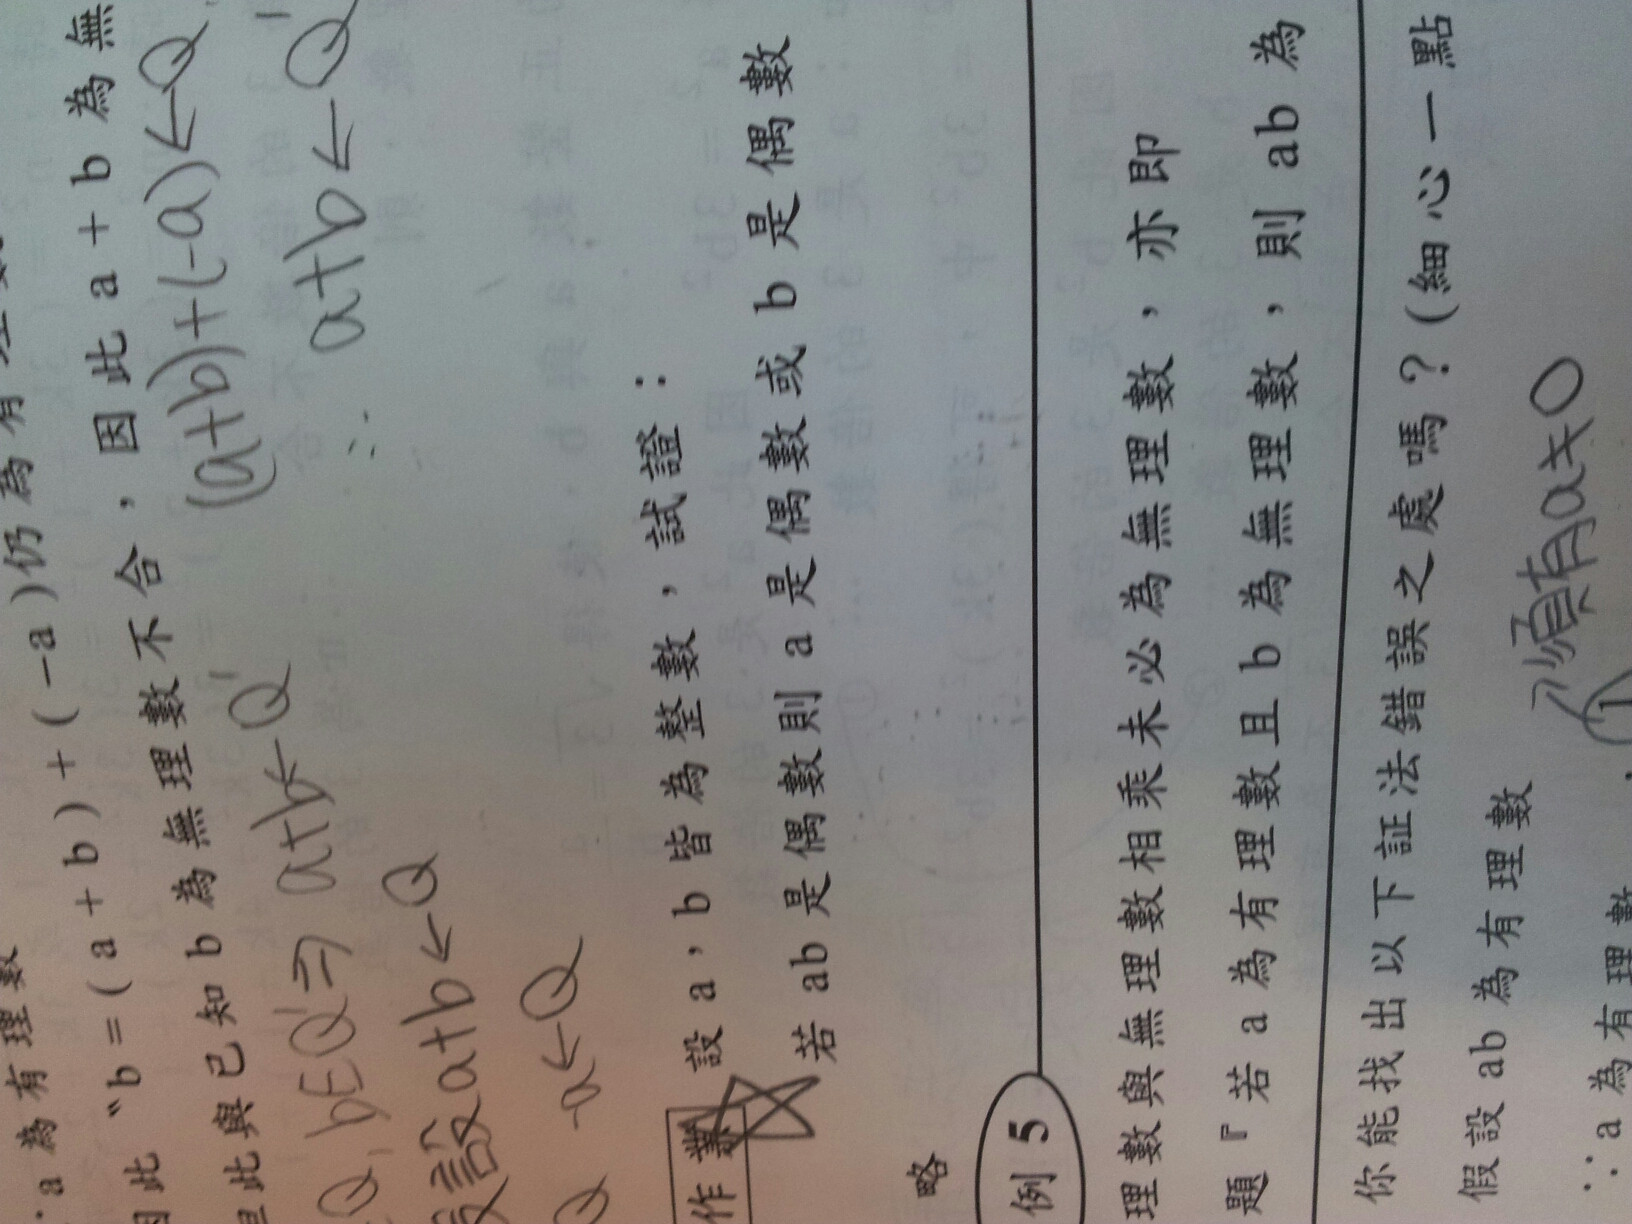 ∵a 為有理數
因此 "b=(a+b)+(-a)仍為有理數
但此與已知 b 為無理數不合，因此 a+b 為無
(a+b)+(-a)←Q
Q, b∈Q'⇒ a+b←Q'
設 a+b←Q
-a←Q
∴ a+b←Q'
作業
設 a，b 皆為整數，試證：
若 ab 是偶數則 a 是偶數或 b 是偶數
略
例 5
理數與無理數相乘未必為無理數，亦即
題『若 a 為有理數且 b 為無理數，則 ab 為
你能找出以下証法錯誤之處嗎？(細心一點
假設 ab 為有理數
須有a≠0
∵a 為有理數
1